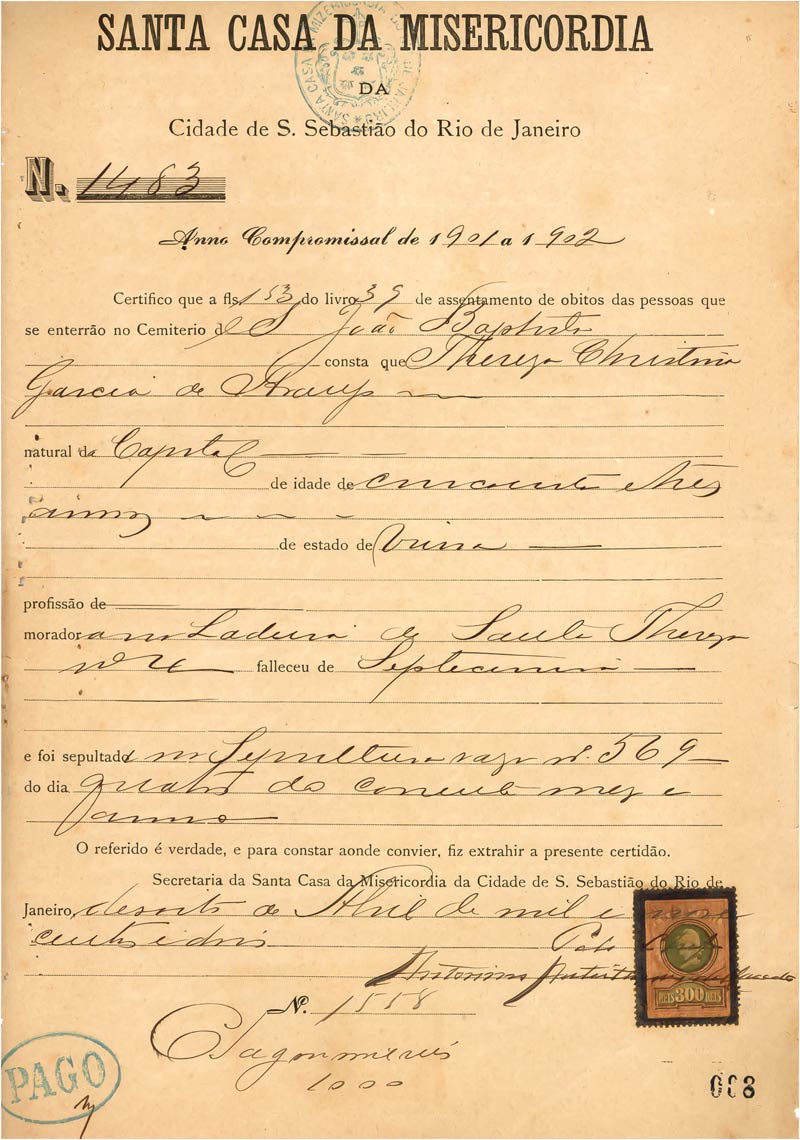 SANTA CASA DA MISERICORDIA
DA
Cidade de S. Sebastião do Rio de Janeiro
N. 1483
Anno Compromissal de 1901 a 1902
Certifico que a fls 153 do livro 39 de assentamento de obitos das pessoas que
se enterrão no Cemiterio de S João Baptista
consta que Thereza Christina
Garcia de Araujo
natural da Capital
de idade de cincoenta e tres
annos
de estado de Viuva
profissão de
moradora na Ladeira de Santa Thereza
falleceu de Septecemia
e foi sepultada na Sepultura raza nº. 569
do dia quatro do corrente mez e
anno
O referido é verdade, e para constar aonde convier, fiz extrahir a presente certidão.
Secretaria da Santa Casa da Misericordia da Cidade de S. Sebastião do Rio de
Janeiro, desoito de Abril de mil e nove
centos e dois
Antonino
REIS 300 REIS
N. 1558
Pagou mil reis
1000
PAGO
008